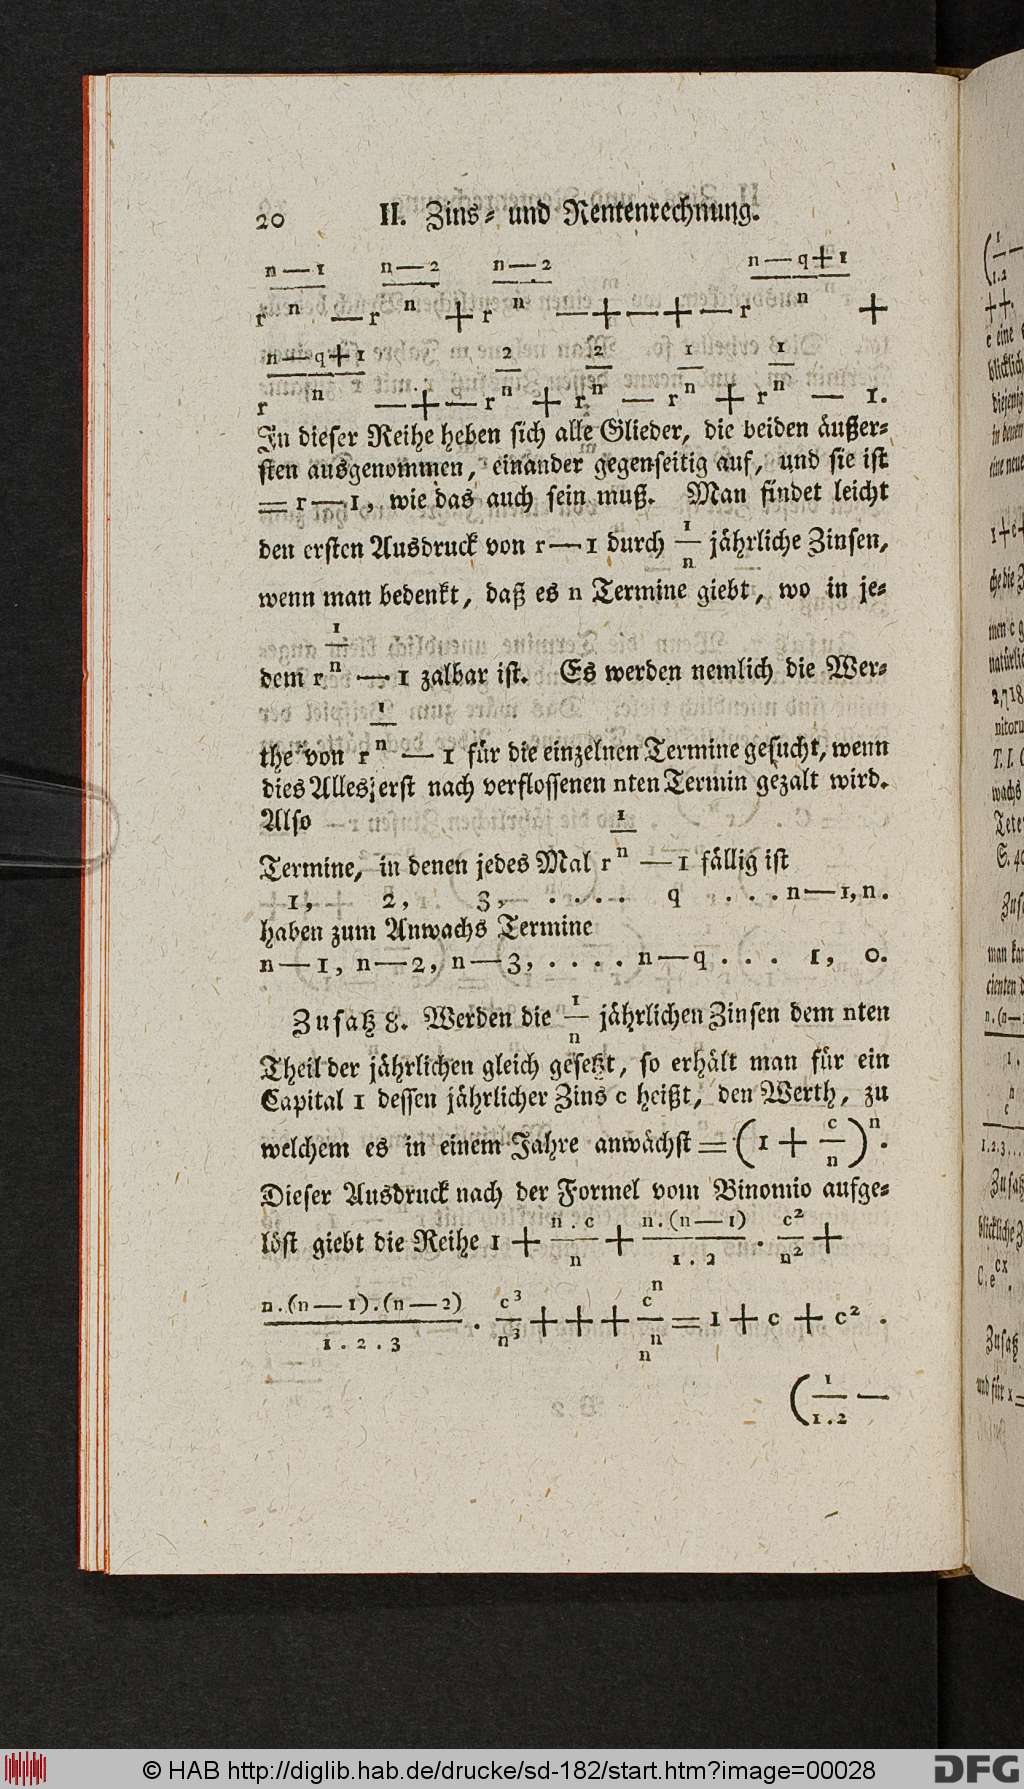 20 II. Zins- und Rentenrechnung.
r^{\frac{n—1}{n}} — r^{\frac{n—2}{n}} + r^{\frac{n—2}{n}} — + — + — r^{\frac{n—q+1}{n}} +
r^{\frac{n—q+1}{n}} — + — r^{\frac{2}{n}} + r^{\frac{2}{n}} — r^{\frac{1}{n}} + r^{\frac{1}{n}} — 1.
In dieser Reihe heben sich alle Glieder, die beiden äußer-
sten ausgenommen, einander gegenseitig auf, und sie ist
= r — 1, wie das auch sein muß. Man findet leicht
den ersten Ausdruck von r — 1 durch \frac{1}{n} jährliche Zinsen,
wenn man bedenkt, daß es n Termine giebt, wo in je-
dem r^{\frac{1}{n}} — 1 zalbar ist. Es werden nemlich die Wer-
the von r^{\frac{1}{n}} — 1 für die einzelnen Termine gesucht, wenn
dies Alles erst nach verflossenen nten Termin gezalt wird.
Also
Termine, in denen jedes Mal r^{\frac{1}{n}} — 1 fällig ist
1, 2, 3, . . . . q . . . n — 1, n.
haben zum Anwachs Termine
n — 1, n — 2, n — 3, . . . . n — q . . . 1, 0.
Zusatz 8. Werden die \frac{1}{n} jährlichen Zinsen dem nten
Theil der jährlichen gleich gesetzt, so erhält man für ein
Capital 1 dessen jährlicher Zins c heißt, den Werth, zu
welchem es in einem Jahre anwächst = (1 + \frac{c}{n})^n.
Dieser Ausdruck nach der Formel vom Binomio aufge-
löst giebt die Reihe 1 + \frac{n . c}{n} + \frac{n.(n—1)}{1 . 2} . \frac{c^2}{n^2} +
\frac{n.(n—1).(n—2)}{1 . 2 . 3} . \frac{c^3}{n^3} + + + \frac{c^n}{n^n} = 1 + c + c^2 .
(\frac{1}{1.2} —
© HAB http://diglib.hab.de/drucke/sd-182/start.htm?image=00028
DFG